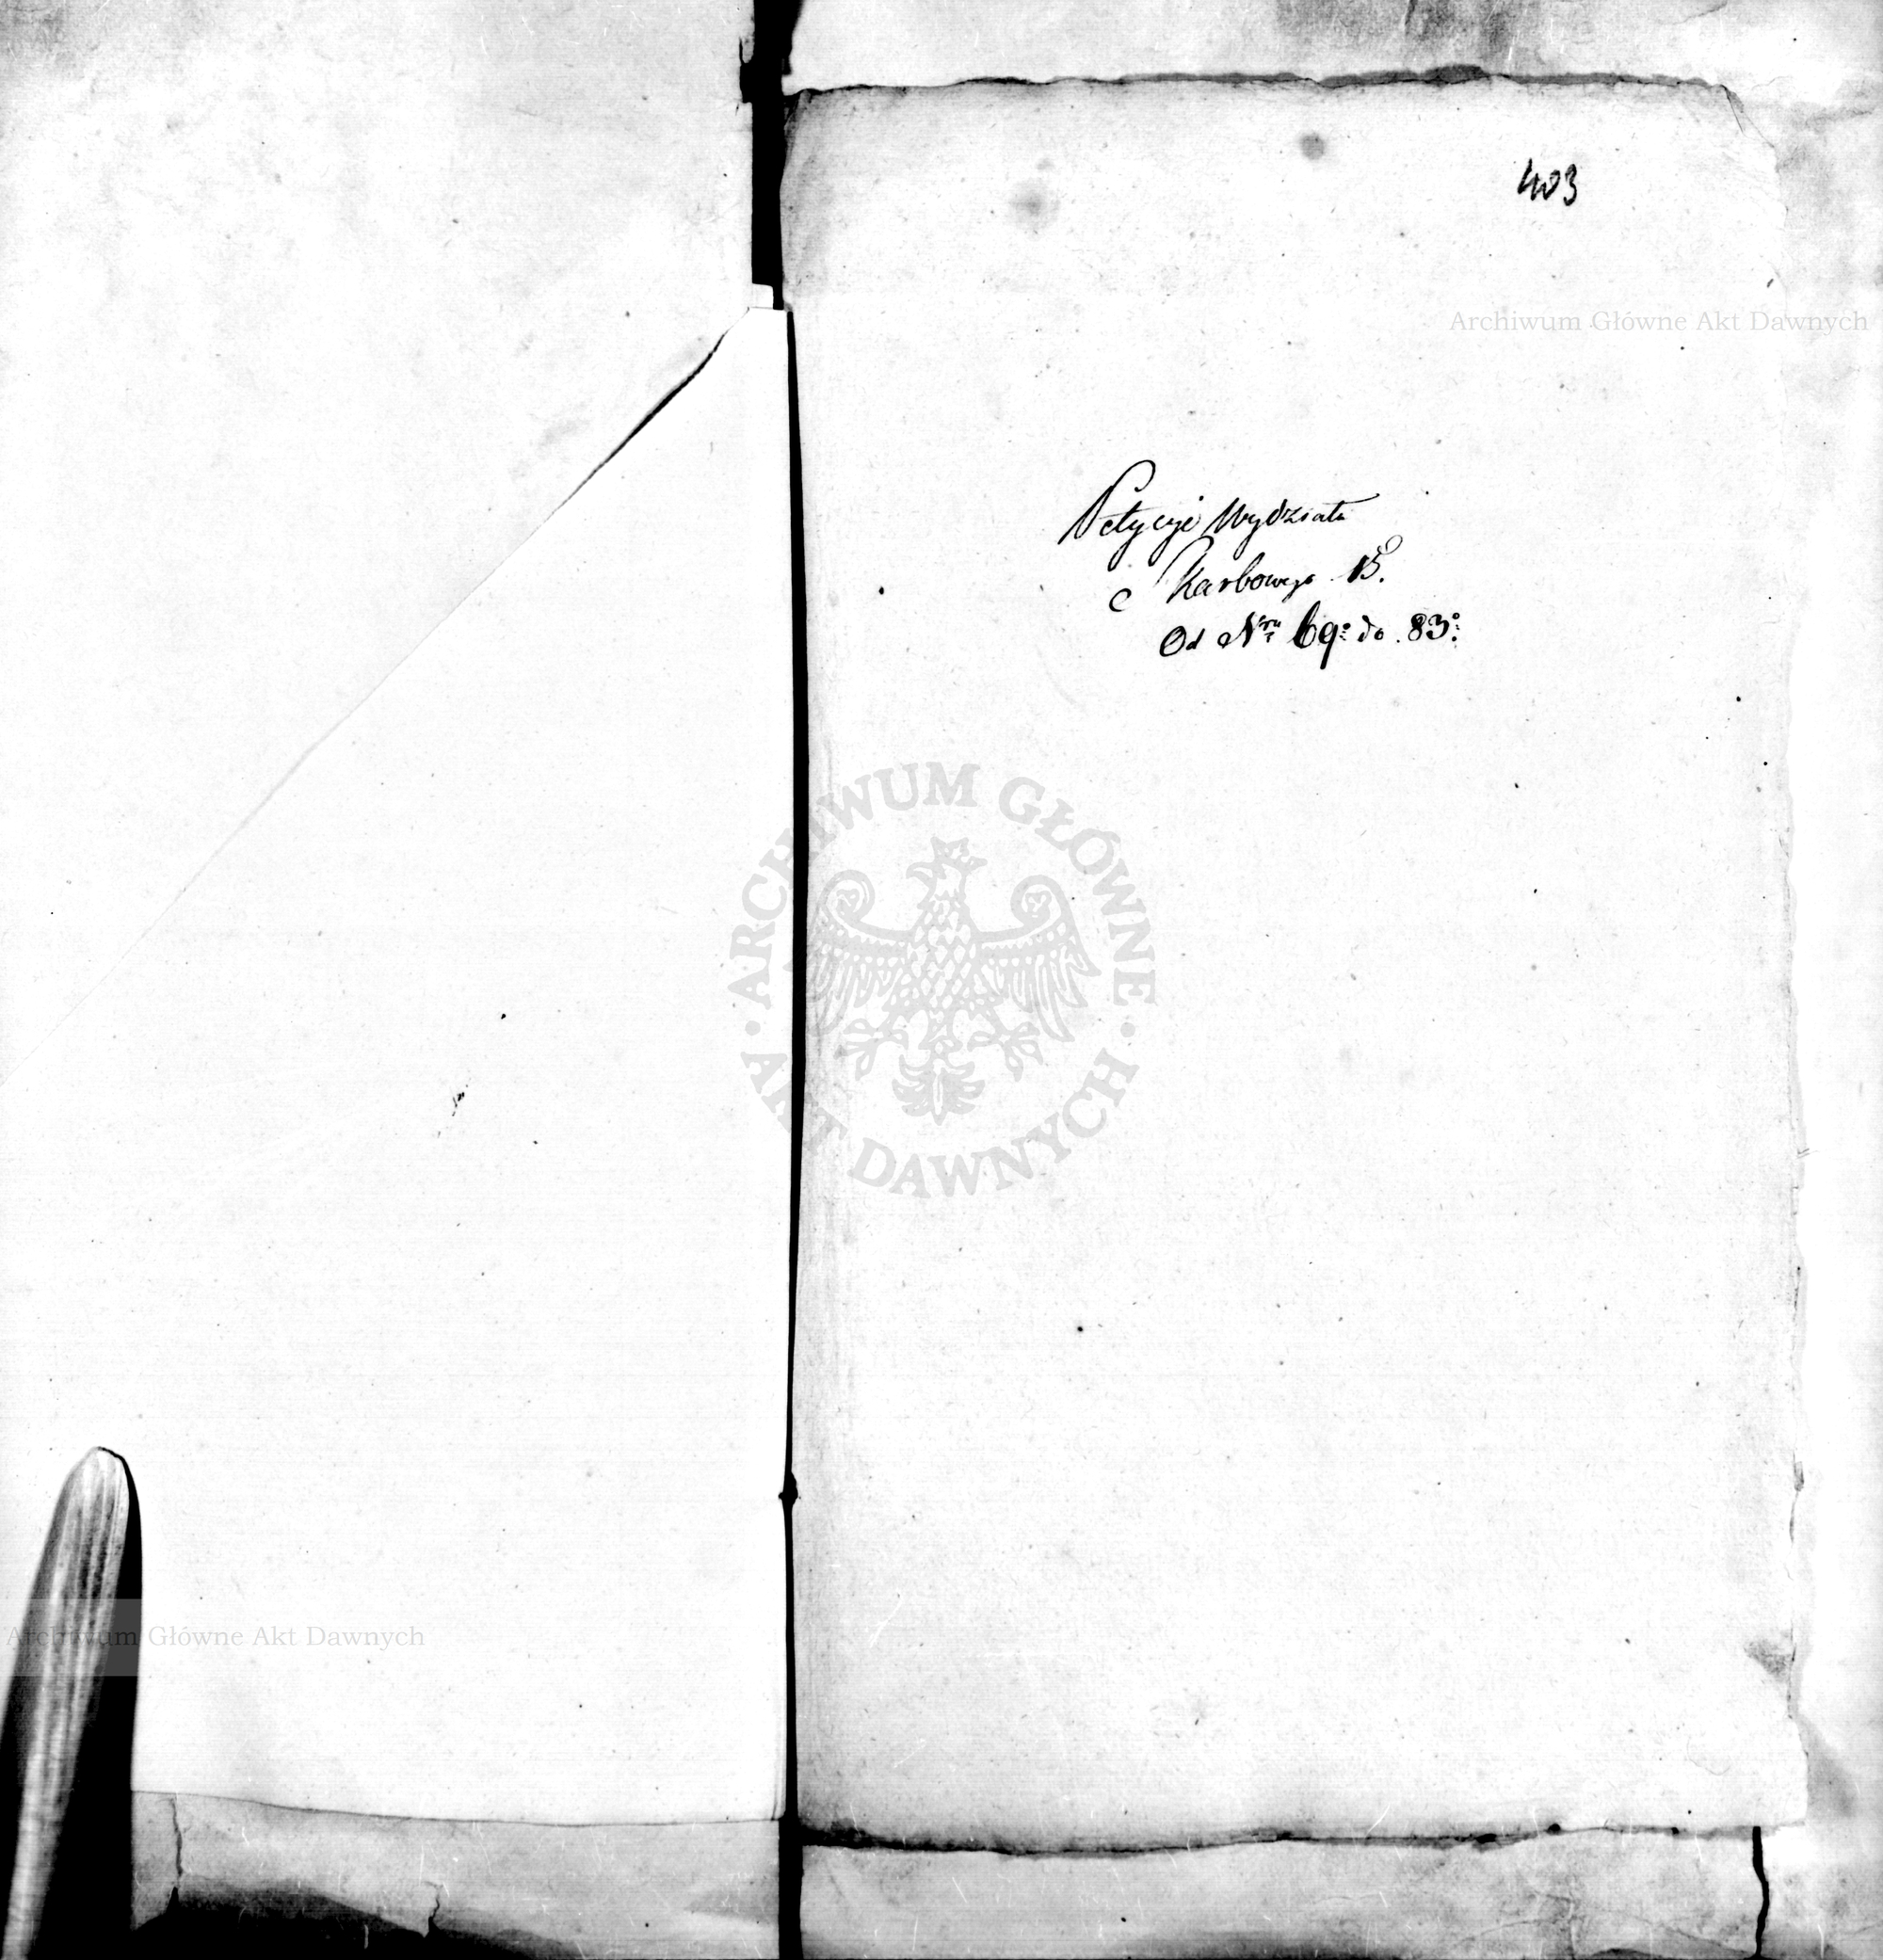 403
Archiwum Główne Akt Dawnych
Petycye Wydziału
Skarbowego 15.
Od Nru 69: do 83:
ARCHIWUM GŁÓWNE
AKT DAWNYCH
Archiwum Główne Akt Dawnych